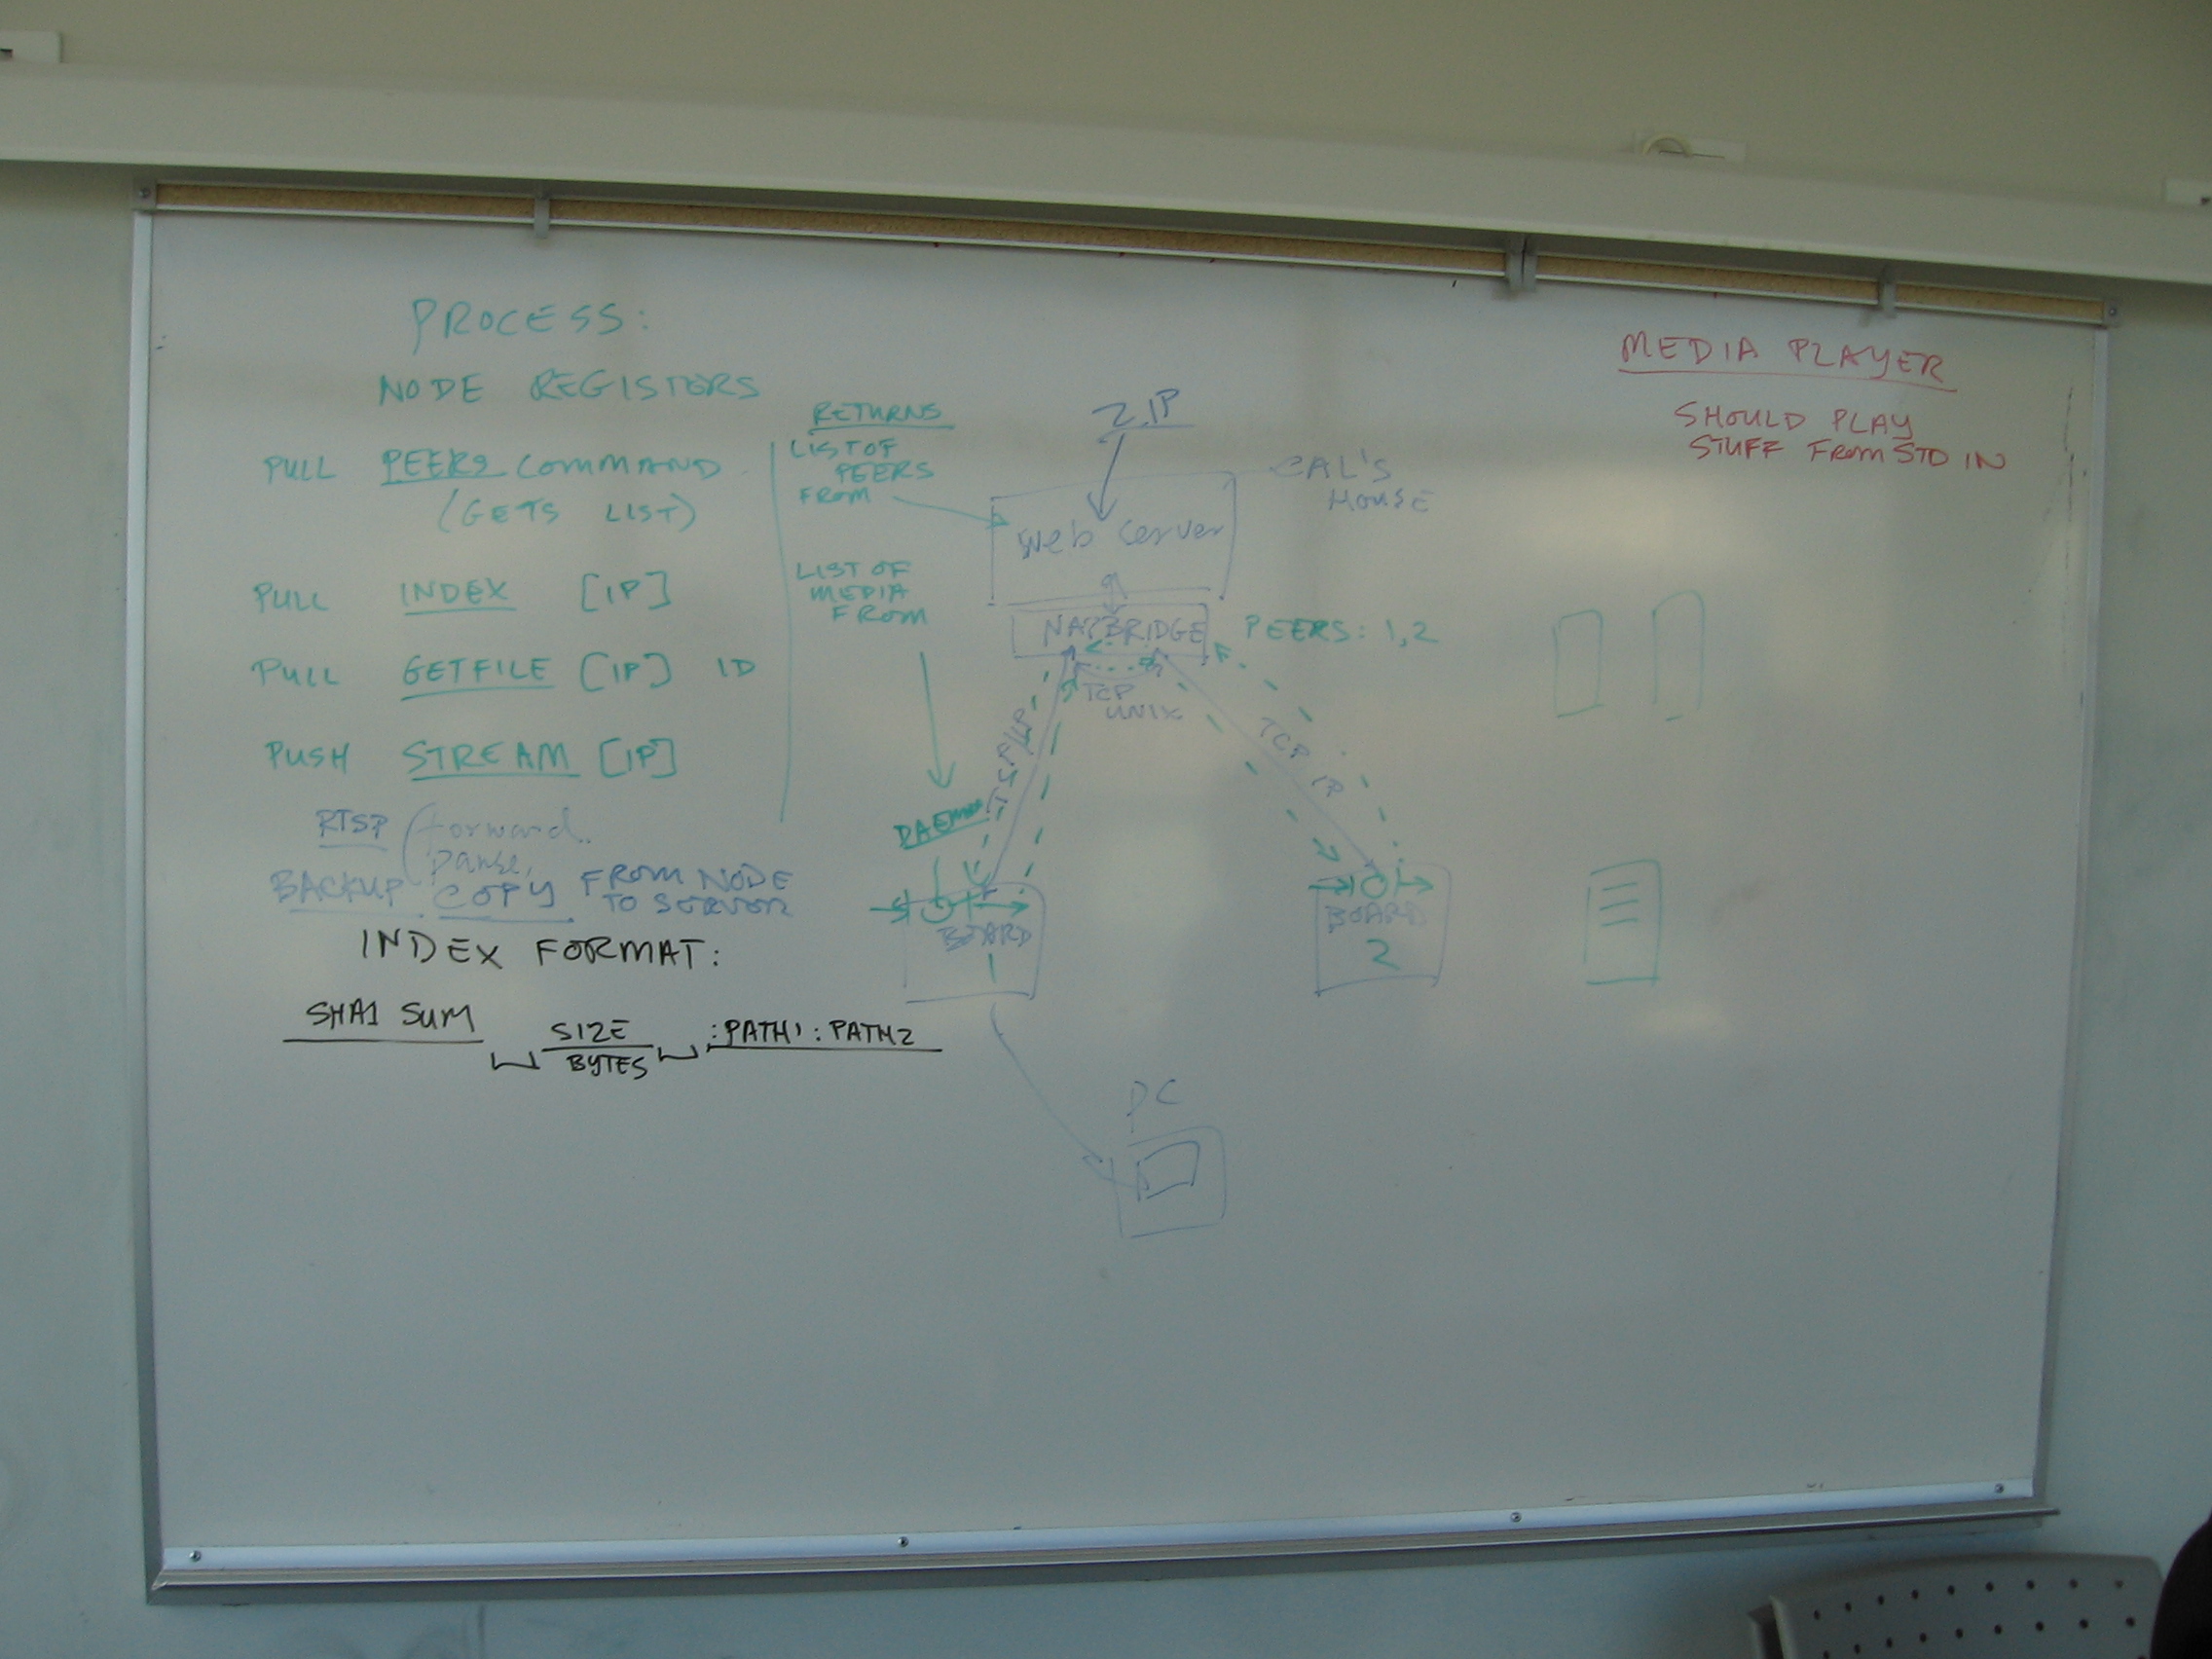 PROCESS:
NODE REGISTERS
PULL PEERS COMMAND
(GETS LIST)
PULL INDEX [IP]
PULL GETFILE [IP] ID
PUSH STREAM [IP]
RTSP (forward
pause,
BACKUP COPY FROM NODE
TO SERVER
INDEX FORMAT:
SHA1 SUM SIZE :PATH1:PATH2
BYTES
RETURNS
LIST OF
PEERS
FROM
LIST OF
MEDIA
FROM
CAL'S
HOUSE
Web Server
PEERS: 1,2
TCP
UNIX
TCP IP
DAEMON
BOARD
1
BOARD
2
PC
MEDIA PLAYER
SHOULD PLAY
STUFF FROM STD IN